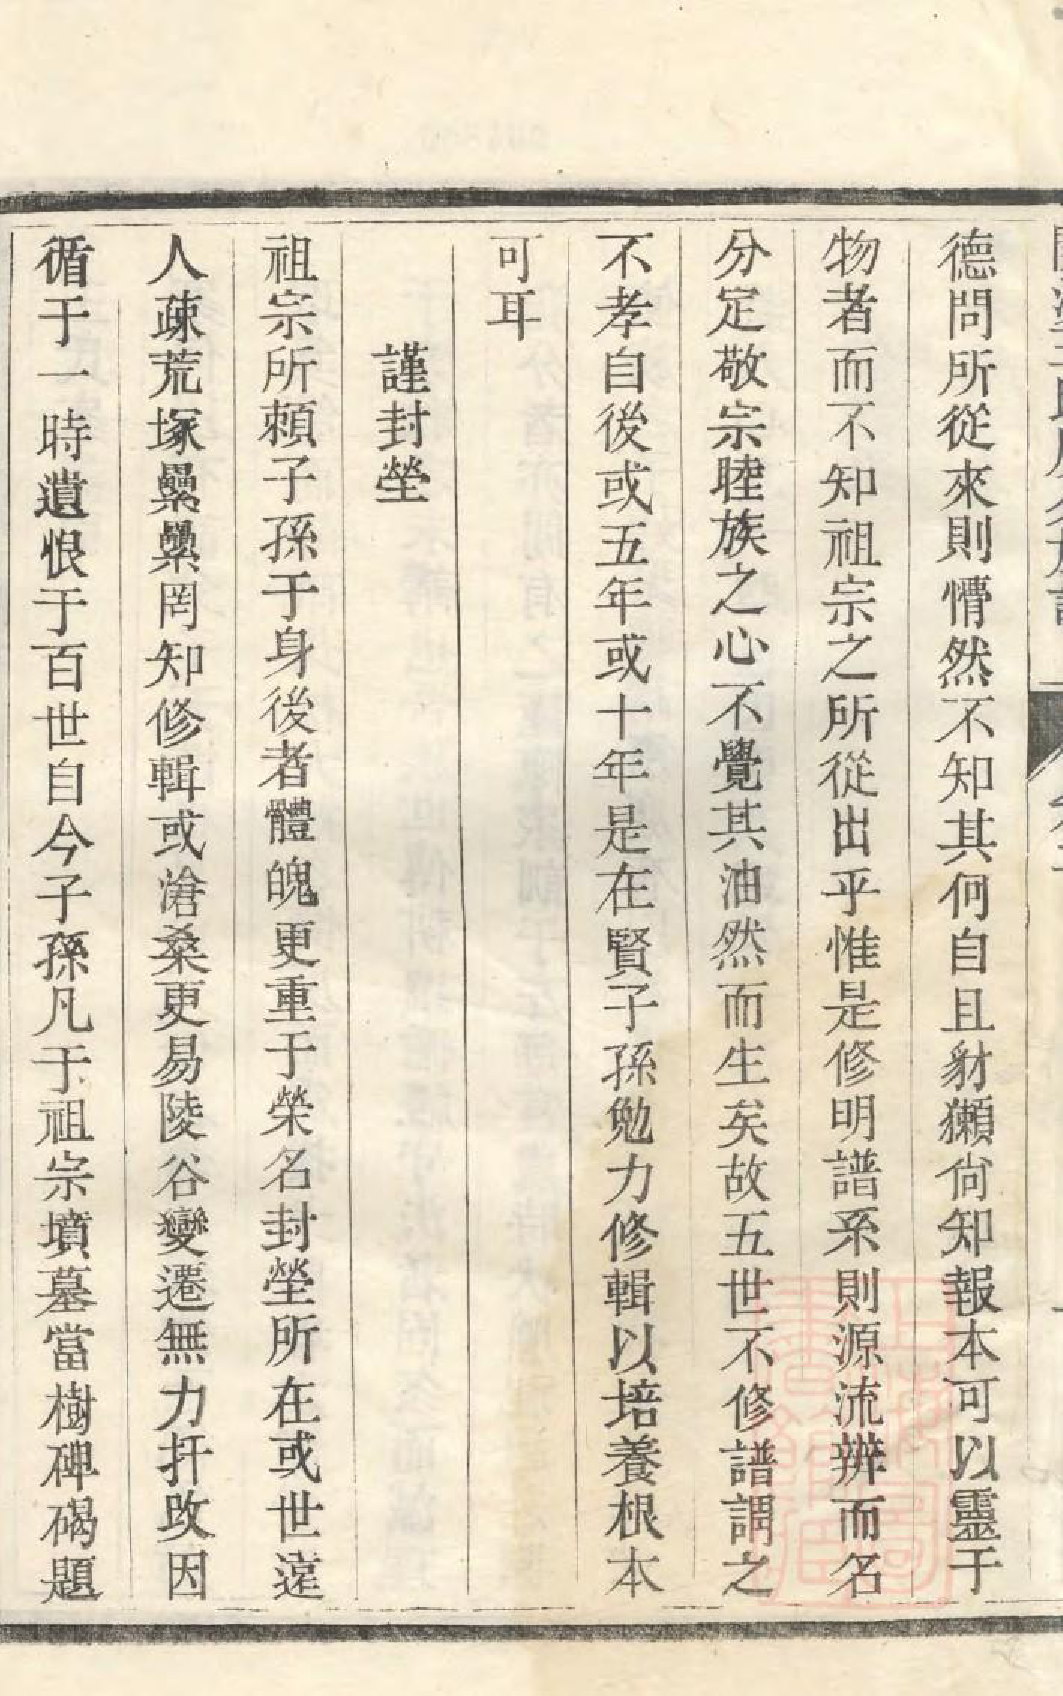 德問所從來則懵然不知其何自且豺獺尙知報本可以靈于
物者而不知祖宗之所從出乎惟是修明譜系則源流辨而名
分定敬宗睦族之心不覺其油然而生矣故五世不修譜謂之
不孝自後或五年或十年是在賢子孫勉力修輯以培養根本
可耳
謹封塋
祖宗所賴子孫于身後者體魄更重于榮名封塋所在或世遠
人疎荒塚纍纍罔知修輯或滄桑更易陵谷變遷無力扞改因
循于一時遺恨于百世自今子孫凡于祖宗墳墓當樹碑碣題